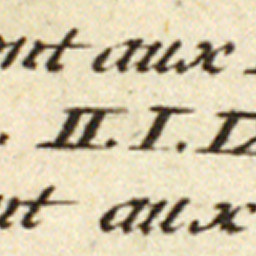 nt aux
II. I.
ut aux